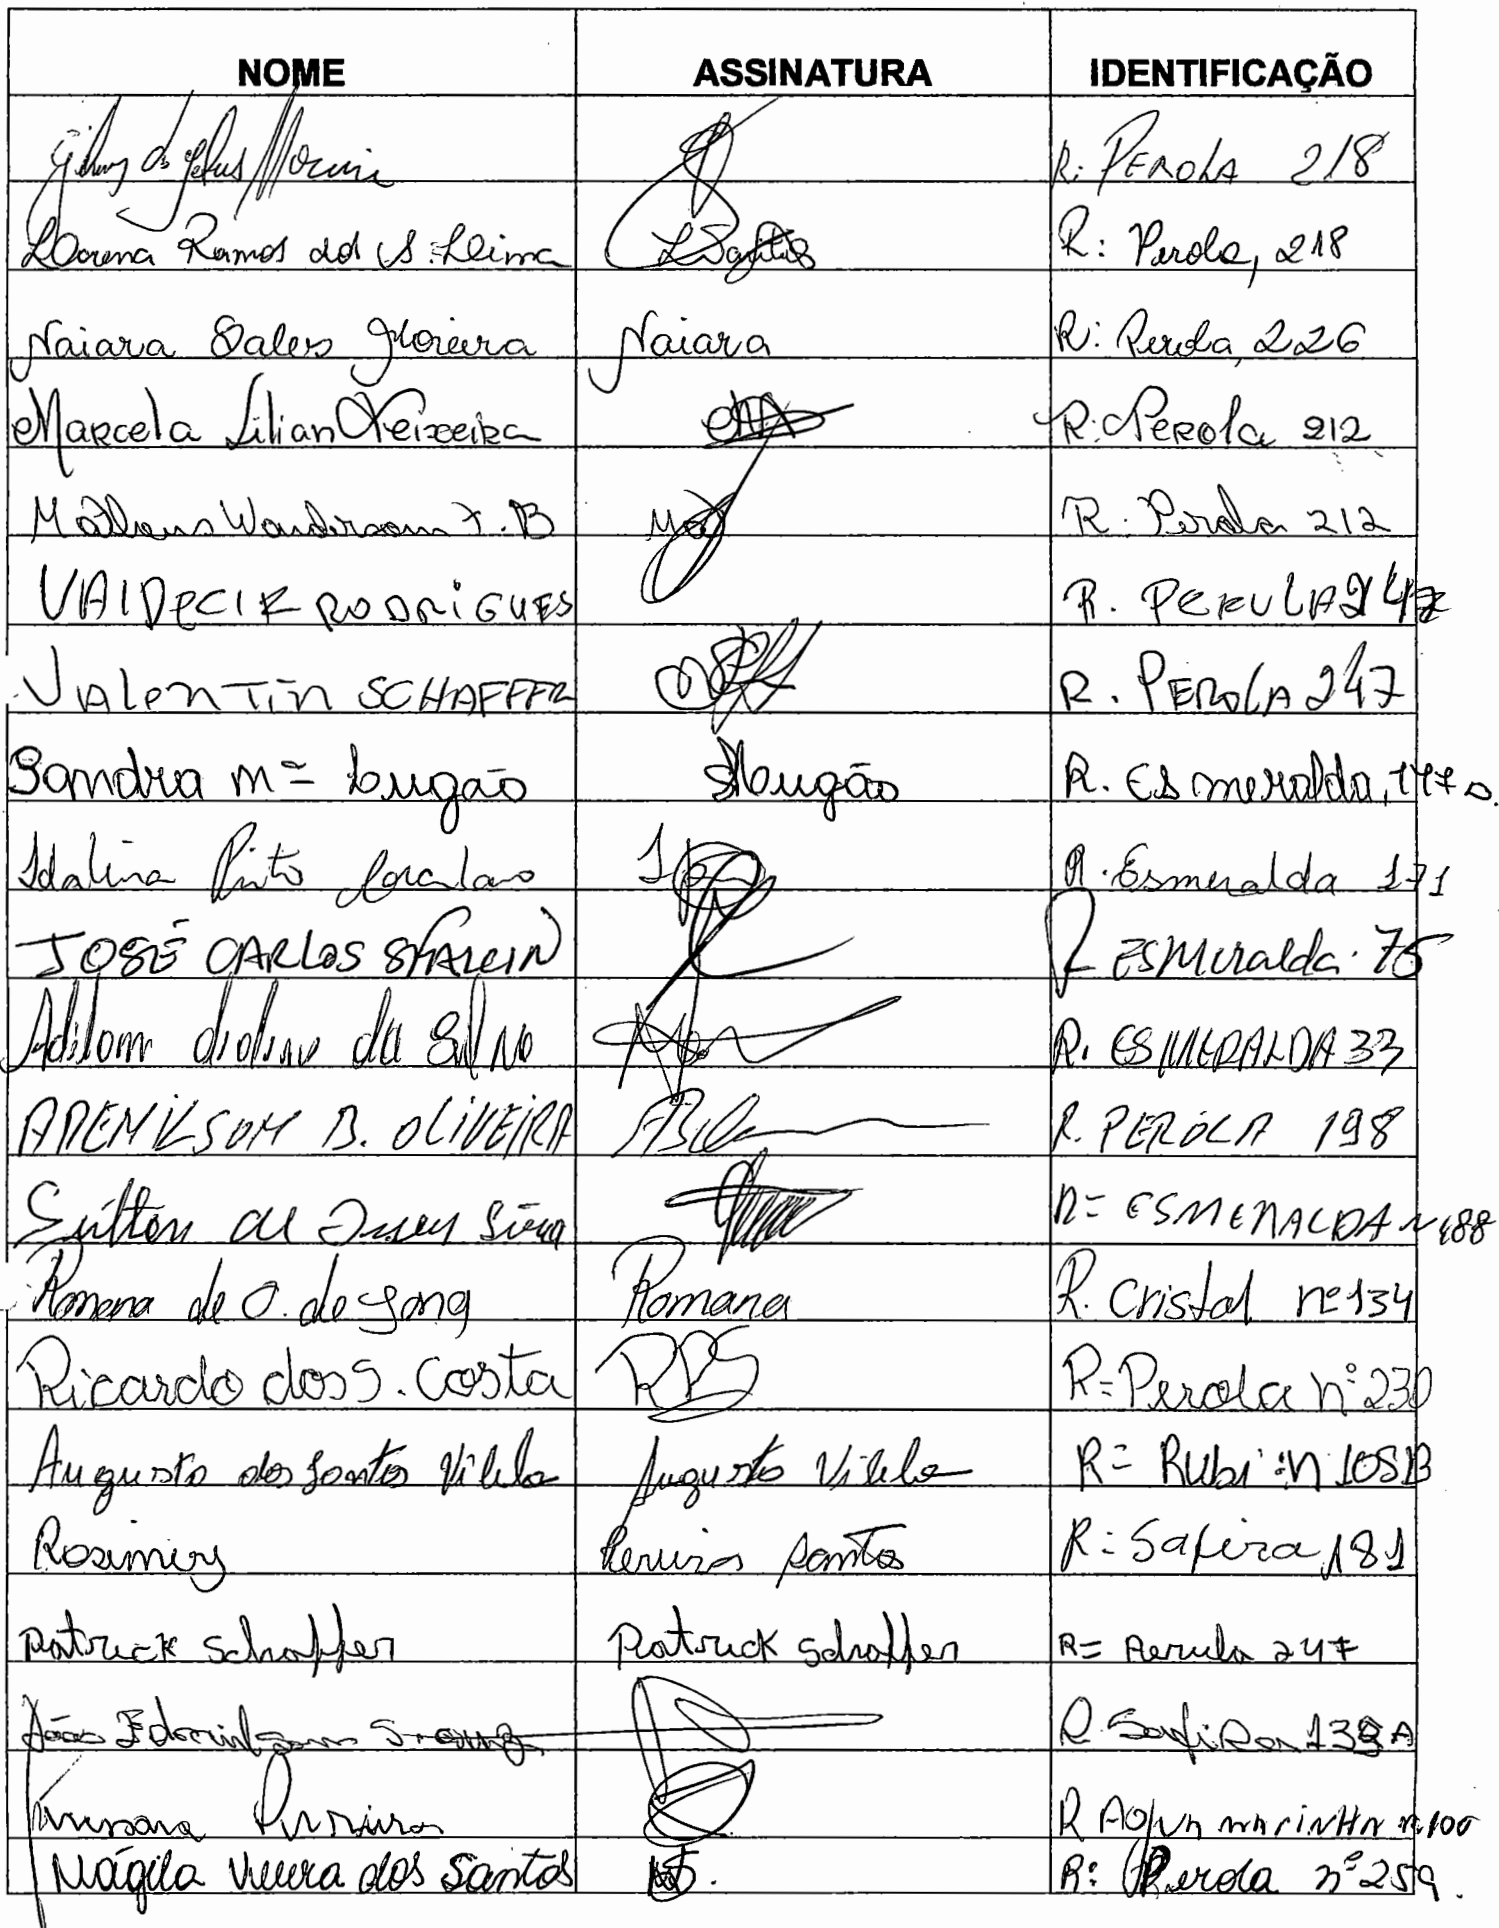 NOME ASSINATURA IDENTIFICAÇÃO
de Jesus R: PEROLA 218
Lorena Ramos dos S. Leima LSantos R: Perola, 218
Naiara Sales Moreira Naiara R: Perola, 226
Marcela Lilian Teixeira R: Perola 212
Matheus Wanderson T. B R. Perola 212
VAlDeCIR RODRiGUES R. PERULA 247
VAlenTin SCHAFFER R. PEROlA 247
Sandra Mª Lugão SLugão R. Esmeralda, 117
Idalina Pinto R. Esmeralda 171
JOSÉ CARLOS R ESMeralda. 75
Adilom da Silva R. ESMERALDA 33
B. OLiVEiRA R. PEROLA 198
de R= ESMERALDA N 188
Romana de O. de Romana R. Cristal nº 134
Ricardo dos S. Costa R= Perola nº 230
Augusto dos Santos Vilela Augusto Vilela R= Rubi :n 105B
Rosimery Pereira Santos R: Safira, 181
Patrick Schaffer Patrick Schaffer R= Perula 247
João S. R. Safira 139 A
Pereira R AQUA MARINHA n. 100
Nágila Vieira dos Santos R: Perola nº 259.